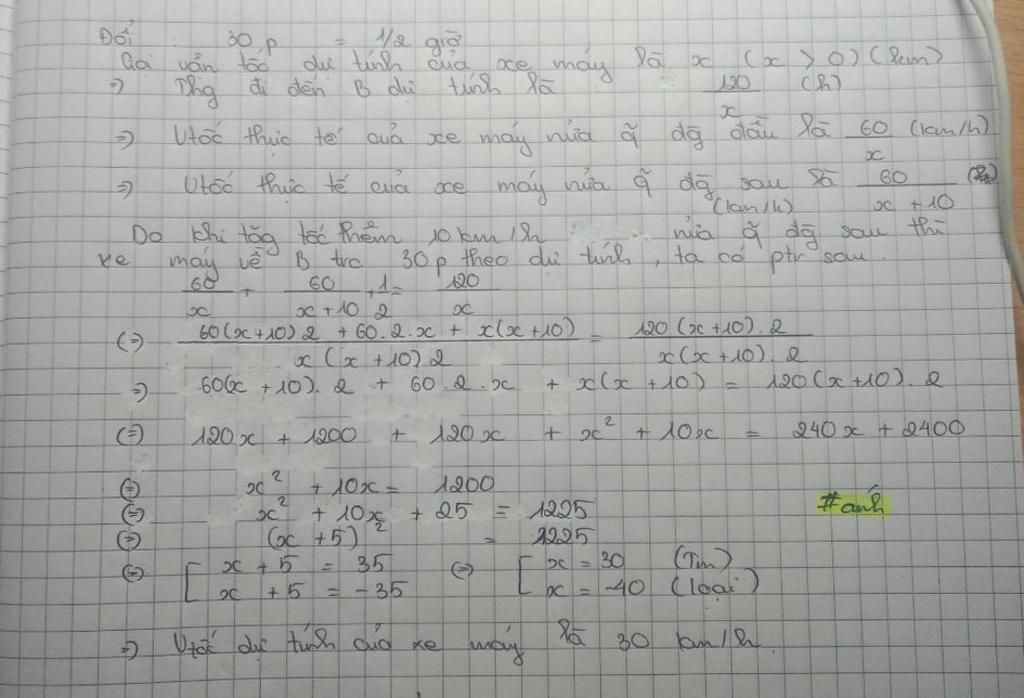 Đổi 30 p = 1/2 giờ
Gọi vận tốc dự tính của xe máy là x (x > 0) (km)
=) Thg đi đến B dự tính là 120/x (h)
=) Vtốc thực tế của xe máy nửa q̃ đg̃ đầu là 60/x (km/h)
=) Vtốc thực tế của xe máy nửa q̃ đg̃ sau là 60/(x+10) (km/h)
Do khi tăg tốc thêm 10 km/h nửa q̃ đg̃ sau thì
xe máy về B trc 30p theo dự tính, ta có ptr sau.
60/x + 60/(x+10) + 1/2 = 120/x
(=) (60(x+10)2 + 60.2.x + x(x+10))/(x(x+10).2) = (120(x+10).2)/(x(x+10).2)
=) 60(x+10).2 + 60.2.x + x(x+10) = 120(x+10).2
(=) 120x + 1200 + 120x + x² + 10x = 240x + 2400
(=) x² + 10x = 1200
(=) x² + 10x + 25 = 1225 #anh
(=) (x+5)² = 1225
(=) [ x + 5 = 35 (=) [ x = 30 (Tm)
x + 5 = -35 x = -40 (loại)
=) Vtốc dự tính của xe máy là 30 km/h.